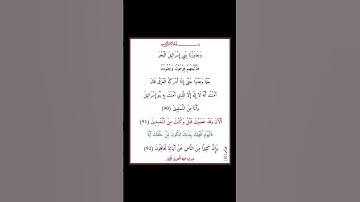 وَجَاوَزْنَا بِبَنِي إِسْرَائِيلَ الْبَحْرَ
فَأَتْبَعَهُمْ فِرْعَوْنُ وَجُنُودُهُ
بَغْيًا وَعَدْوًا حَتَّى إِذَا أَدْرَكَهُ الْغَرَقُ قَالَ
آمَنْتُ أَنَّهُ لَا إِلَهَ إِلَّا الَّذِي آمَنَتْ بِهِ بَنُو إِسْرَائِيلَ
وَأَنَا مِنَ الْمُسْلِمِينَ (90)
آلْآنَ وَقَدْ عَصَيْتَ قَبْلُ وَكُنْتَ مِنَ الْمُفْسِدِينَ (91)
فَالْيَوْمَ نُنَجِّيكَ بِبَدَنِكَ لِتَكُونَ لِمَنْ خَلْفَكَ آيَةً
وَإِنَّ كَثِيرًا مِنَ النَّاسِ عَنْ آيَاتِنَا لَغَافِلُونَ (92)